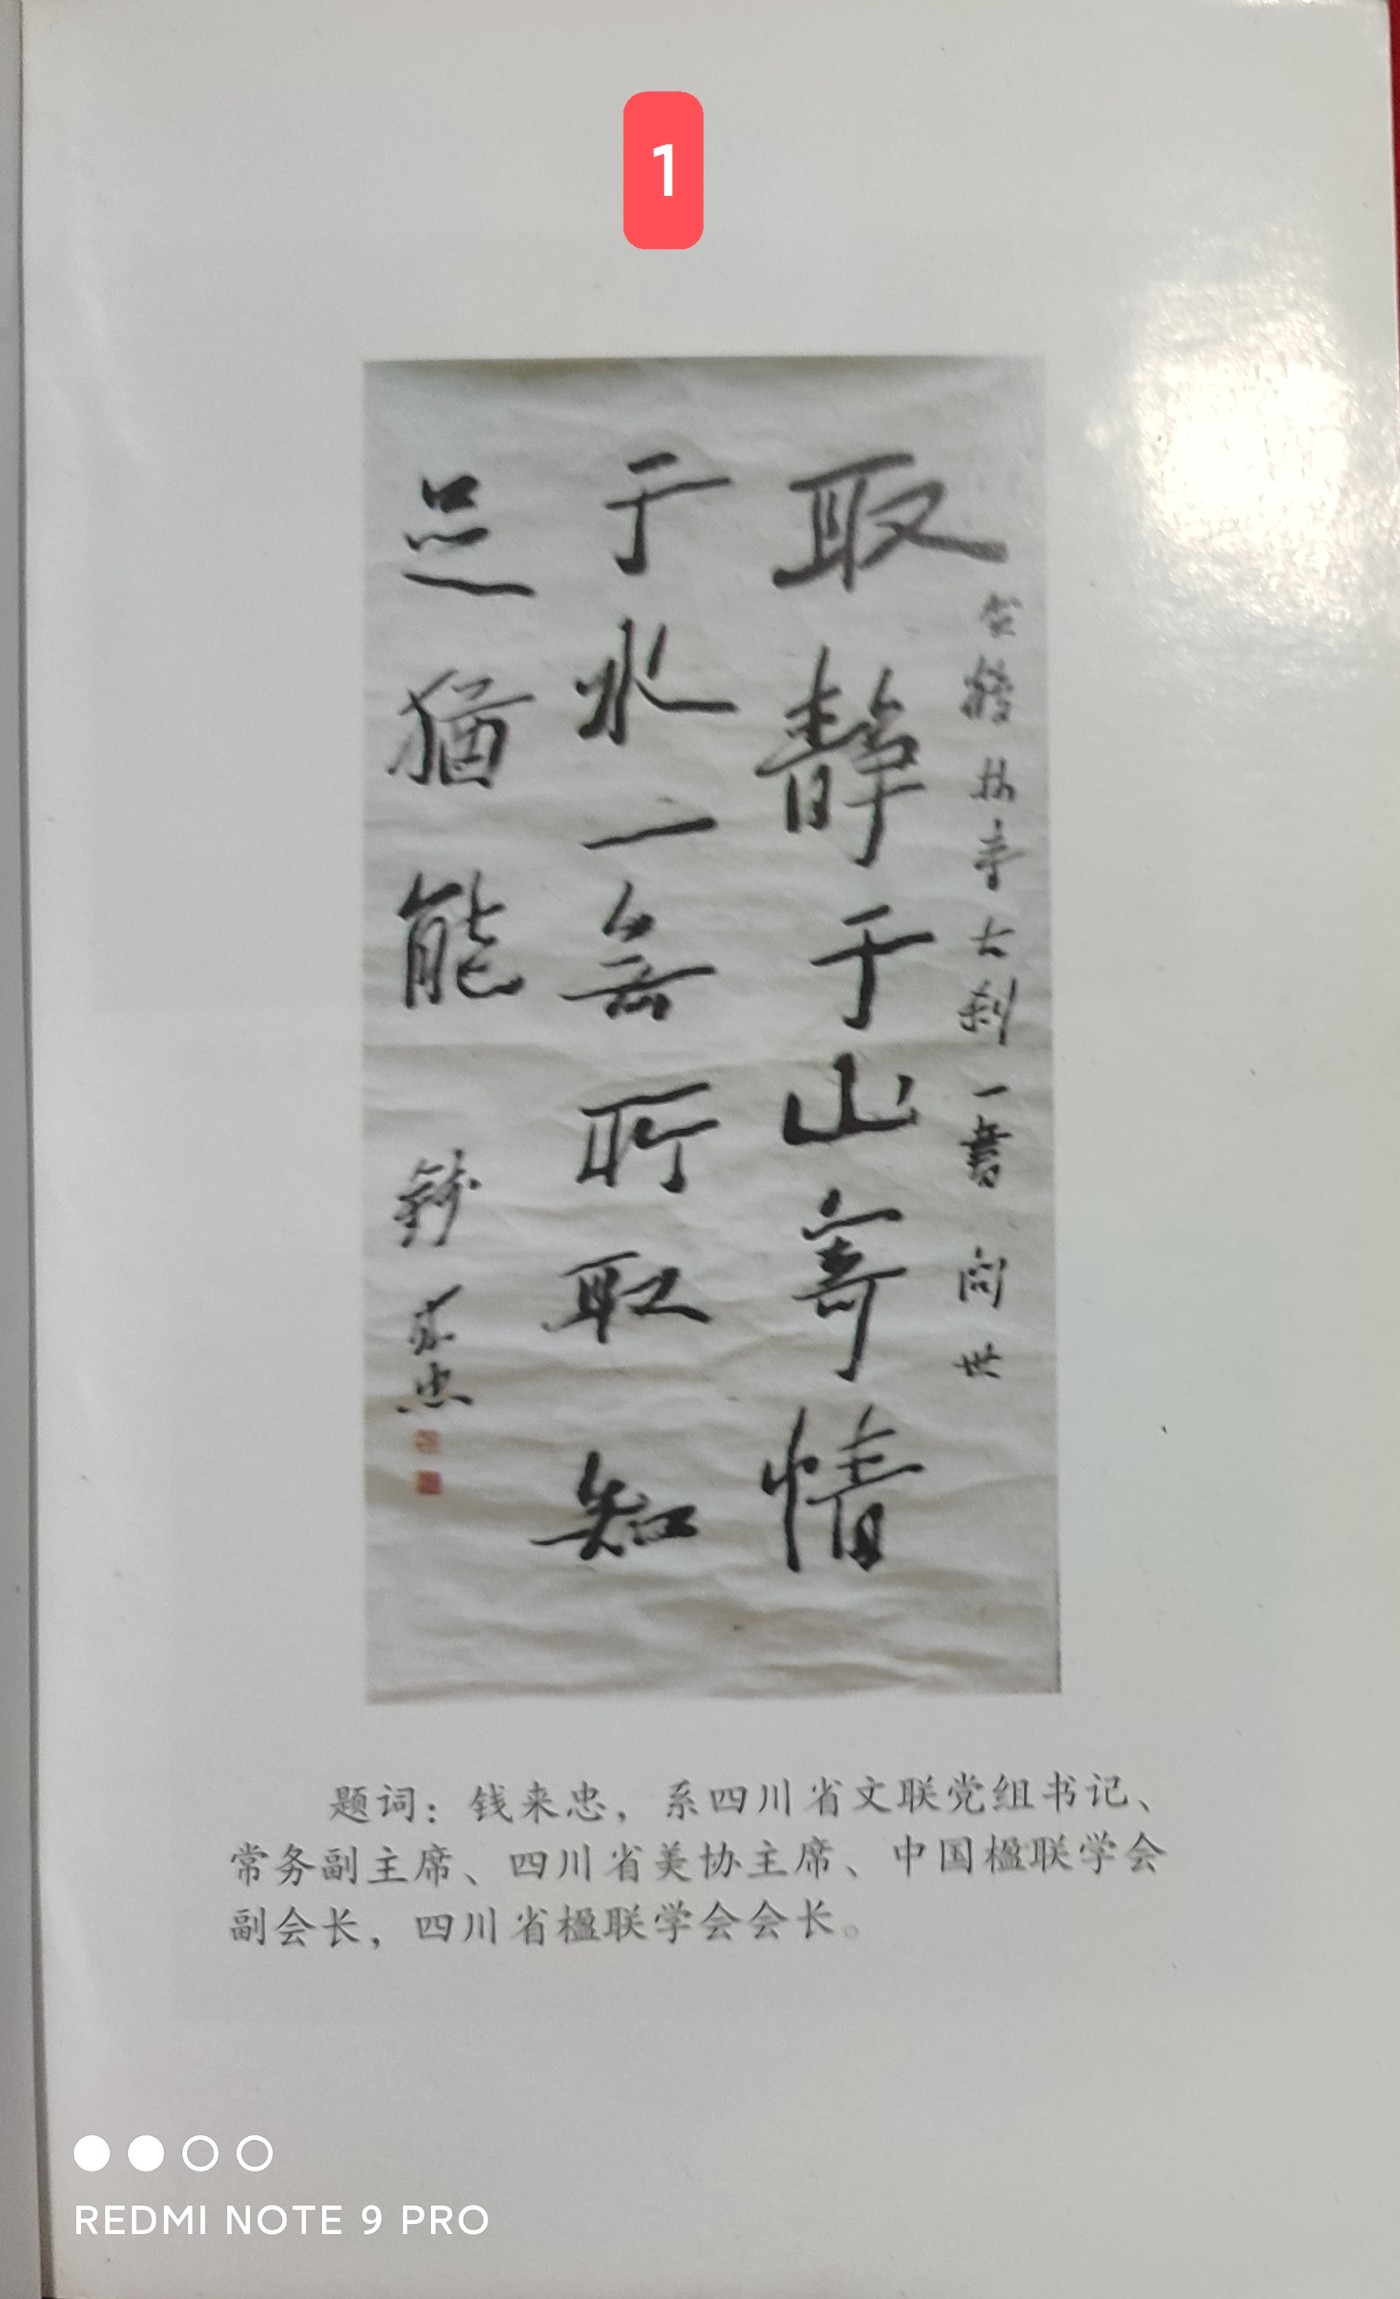 1
贺鹤林寺古刹一书问世
取静于山寄情
于水一無所取知
足犹能
钱来忠
题词：钱来忠，系四川省文联党组书记、
常务副主席、四川省美协主席、中国楹联学会
副会长，四川省楹联学会会长。
REDMI NOTE 9 PRO